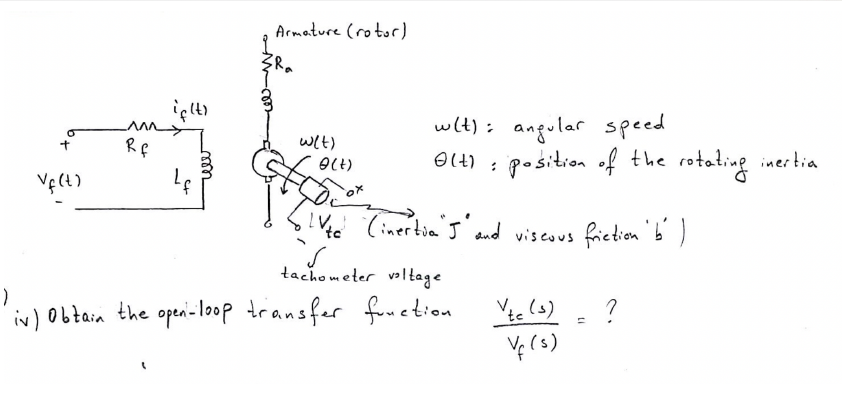 Armature (rotor)
Ra
if(t)
+
Rf
w(t)
θ(t)
w(t) : angular speed
θ(t) : position of the rotating inertia
Vf(t)
Lf
-
+
Vtc (inertia "J" and viscous friction 'b')
-
tachometer voltage
iv) Obtain the open-loop transfer function Vtc(s) / Vf(s) = ?